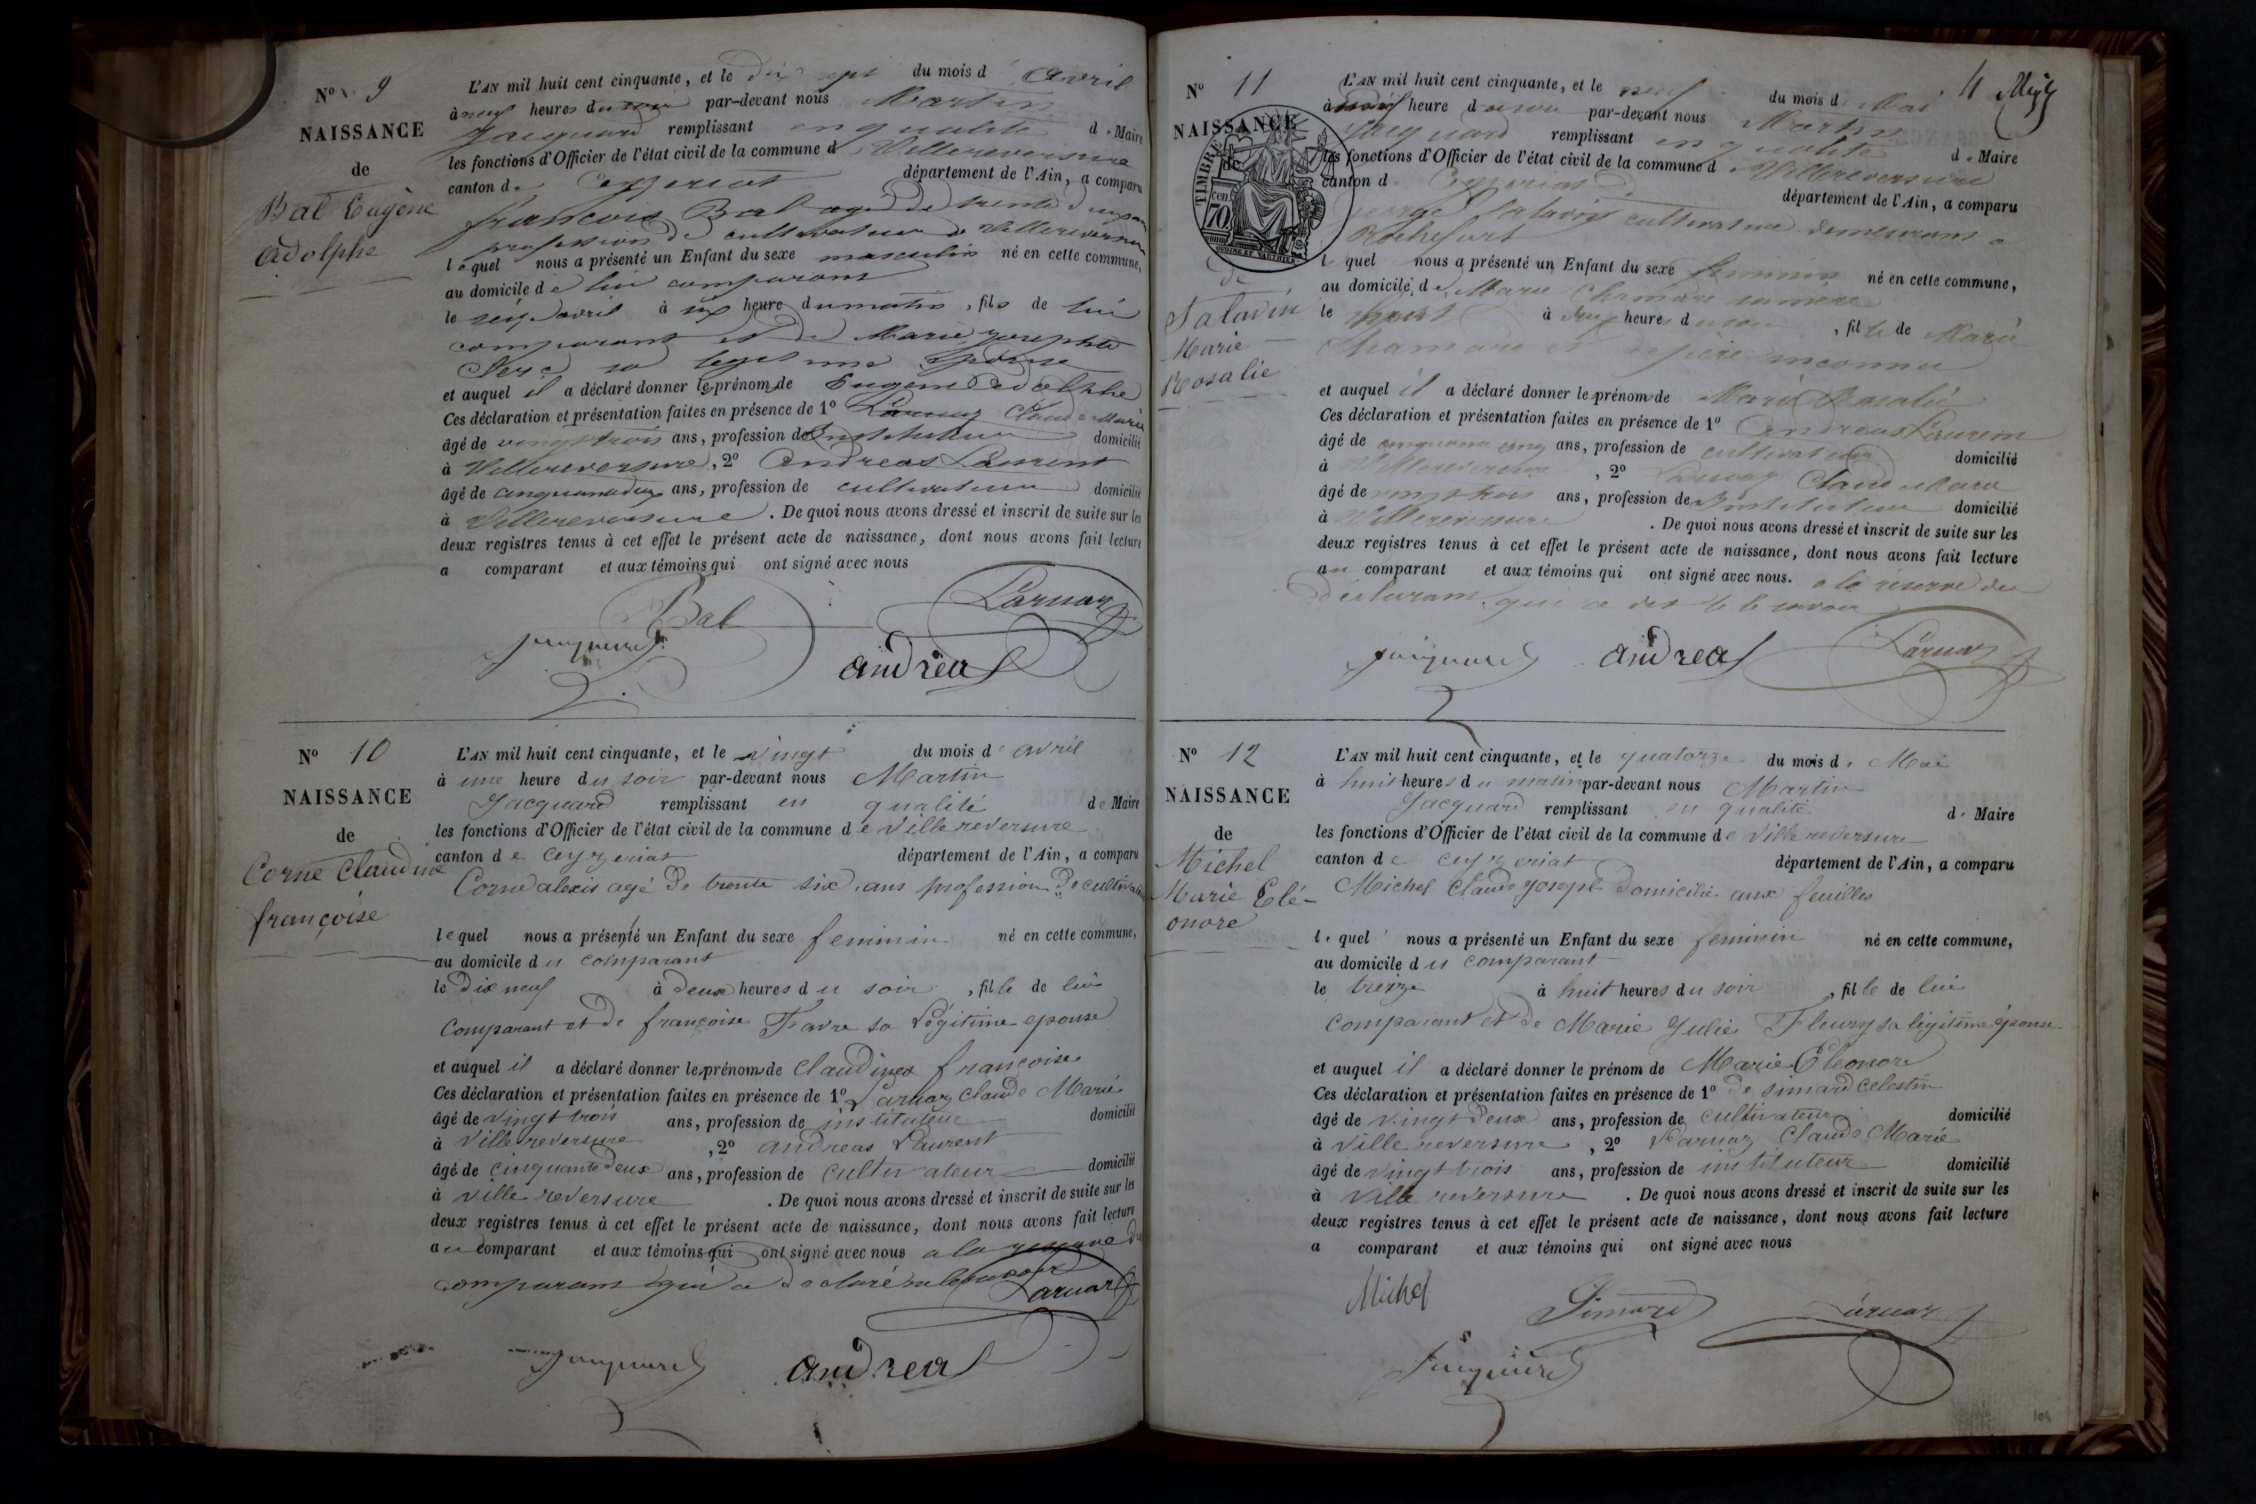 N° 9
NAISSANCE
de
Bal Eugène
Adolphe
L'AN mil huit cent cinquante, et le dix sept du mois d'avril
à neuf heures du soir par-devant nous Martin
Jacquard remplissant en qualité de Maire
les fonctions d'Officier de l'état civil de la commune de Villereversure
canton de Ceyzeriat département de l'Ain, a comparu
François Bal agé de trente
profession de cultivateur à Villereversure
lequel nous a présenté un Enfant du sexe masculin né en cette commune,
au domicile de lui comparant
le seize avril à six heure du matin, fils de lui
comparant et de Marie Josephte
sa legitime Epouse
et auquel il a déclaré donner les prénoms de Eugène Adolphe
Ces déclaration et présentation faites en présence de 1° Laruaz Claude Marie
âgé de vingt trois ans, profession de Instituteur domicilié
à Villereversure, 2° Andreas Laurent
âgé de cinquante deux ans, profession de cultivateur domicilié
à Villereversure. De quoi nous avons dressé et inscrit de suite sur les
deux registres tenus à cet effet le présent acte de naissance, dont nous avons fait lecture
a comparant et aux témoins qui ont signé avec nous
Bal Laruaz
Jacquard andreas
N° 10
NAISSANCE
de
Corne Claudine
françoise
L'AN mil huit cent cinquante, et le vingt du mois d'avril
à une heure du soir par-devant nous Martin
Jacquard remplissant en qualité de Maire
les fonctions d'Officier de l'état civil de la commune de Villereversure
canton de Ceyzeriat département de l'Ain, a comparu
Corne alexis agé de trente six ans profession de cultivateur
lequel nous a présenté un Enfant du sexe feminin né en cette commune,
au domicile du comparant
le dix neuf à deux heures du soir, fille de lui
comparant et de françoise Favre sa Légitime epouse
et auquel il a déclaré donner les prénoms de Claudine françoise
Ces déclaration et présentation faites en présence de 1° Laruaz Claude Marie
âgé de vingt trois ans, profession de instituteur domicilié
à Villereversure, 2° andreas Laurent
âgé de cinquante deux ans, profession de cultivateur domicilié
à Villereversure. De quoi nous avons dressé et inscrit de suite sur les
deux registres tenus à cet effet le présent acte de naissance, dont nous avons fait lecture
au comparant et aux témoins qui ont signé avec nous a la reserve du
comparant qui a declaré ne le savoir
Laruaz
Jacquard andreas
4
N° 11
NAISSANCE
de
TIMBRE
70
de
Salavin
Marie
Rosalie
L'AN mil huit cent cinquante, et le neuf du mois de Mai
à heure du soir par-devant nous Martin
Jacquard remplissant en qualité de Maire
les fonctions d'Officier de l'état civil de la commune de Villereversure
canton de Ceyzeriat département de l'Ain, a comparu
cultivateur demeurant a
Rochefort
lequel nous a présenté un Enfant du sexe feminin né en cette commune,
au domicile de Marie
le à heures du soir, fille de Marie
et de père inconnu
et auquel il a déclaré donner les prénoms de Marie Rosalie
Ces déclaration et présentation faites en présence de 1° Andreas Laurent
âgé de cinquante cinq ans, profession de cultivateur domicilié
à Villereversure, 2° Laruaz Claude Marie
âgé de vingt trois ans, profession de Instituteur domicilié
à Villereversure. De quoi nous avons dressé et inscrit de suite sur les
deux registres tenus à cet effet le présent acte de naissance, dont nous avons fait lecture
au comparant et aux témoins qui ont signé avec nous. a la reserve du
declarant qui a dit ne le savoir
Jacquard andreas Laruaz
N° 12
NAISSANCE
de
Michel
Marie Elé-
onore
L'AN mil huit cent cinquante, et le quatorze du mois de Mai
à huit heures du matin par-devant nous Martin
Jacquard remplissant en qualité de Maire
les fonctions d'Officier de l'état civil de la commune de Villereversure
canton de Ceyzeriat département de l'Ain, a comparu
Michel Claude Joseph domicilié aux feuilles
lequel nous a présenté un Enfant du sexe feminin né en cette commune,
au domicile du comparant
le treize à huit heures du soir, fille de lui
comparant et de Marie Julie Fleury sa légitime épouse
et auquel il a déclaré donner le prénom de Marie Eléonore
Ces déclaration et présentation faites en présence de 1° de simard Celestin
âgé de vingt deux ans, profession de cultivateur domicilié
à Villereversure, 2° Laruaz Claude Marie
âgé de vingt trois ans, profession de instituteur domicilié
à Villereversure. De quoi nous avons dressé et inscrit de suite sur les
deux registres tenus à cet effet le présent acte de naissance, dont nous avons fait lecture
a comparant et aux témoins qui ont signé avec nous
Michel Simard Laruaz
Jacquard